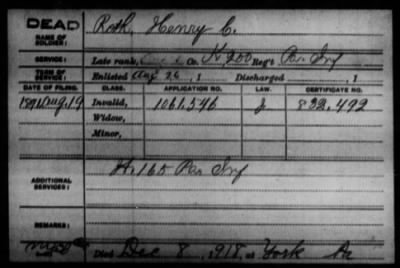 DEAD
NAME OF SOLDIER: Roth, Henry C.
SERVICE: Late rank, Co. K, 200 Reg't Pa. Inf
TERM OF SERVICE: Enlisted Aug 26, 1 Discharged , 1
DATE OF FILING. CLASS. APPLICATION NO. LAW. CERTIFICATE NO.
1891 Aug. 19 Invalid, 1061.546 J 832.492
Widow,
Minor,
ADDITIONAL SERVICES: H. 165 Pa. Inf
REMARKS:
Died Dec 8, 1918, at York Pa